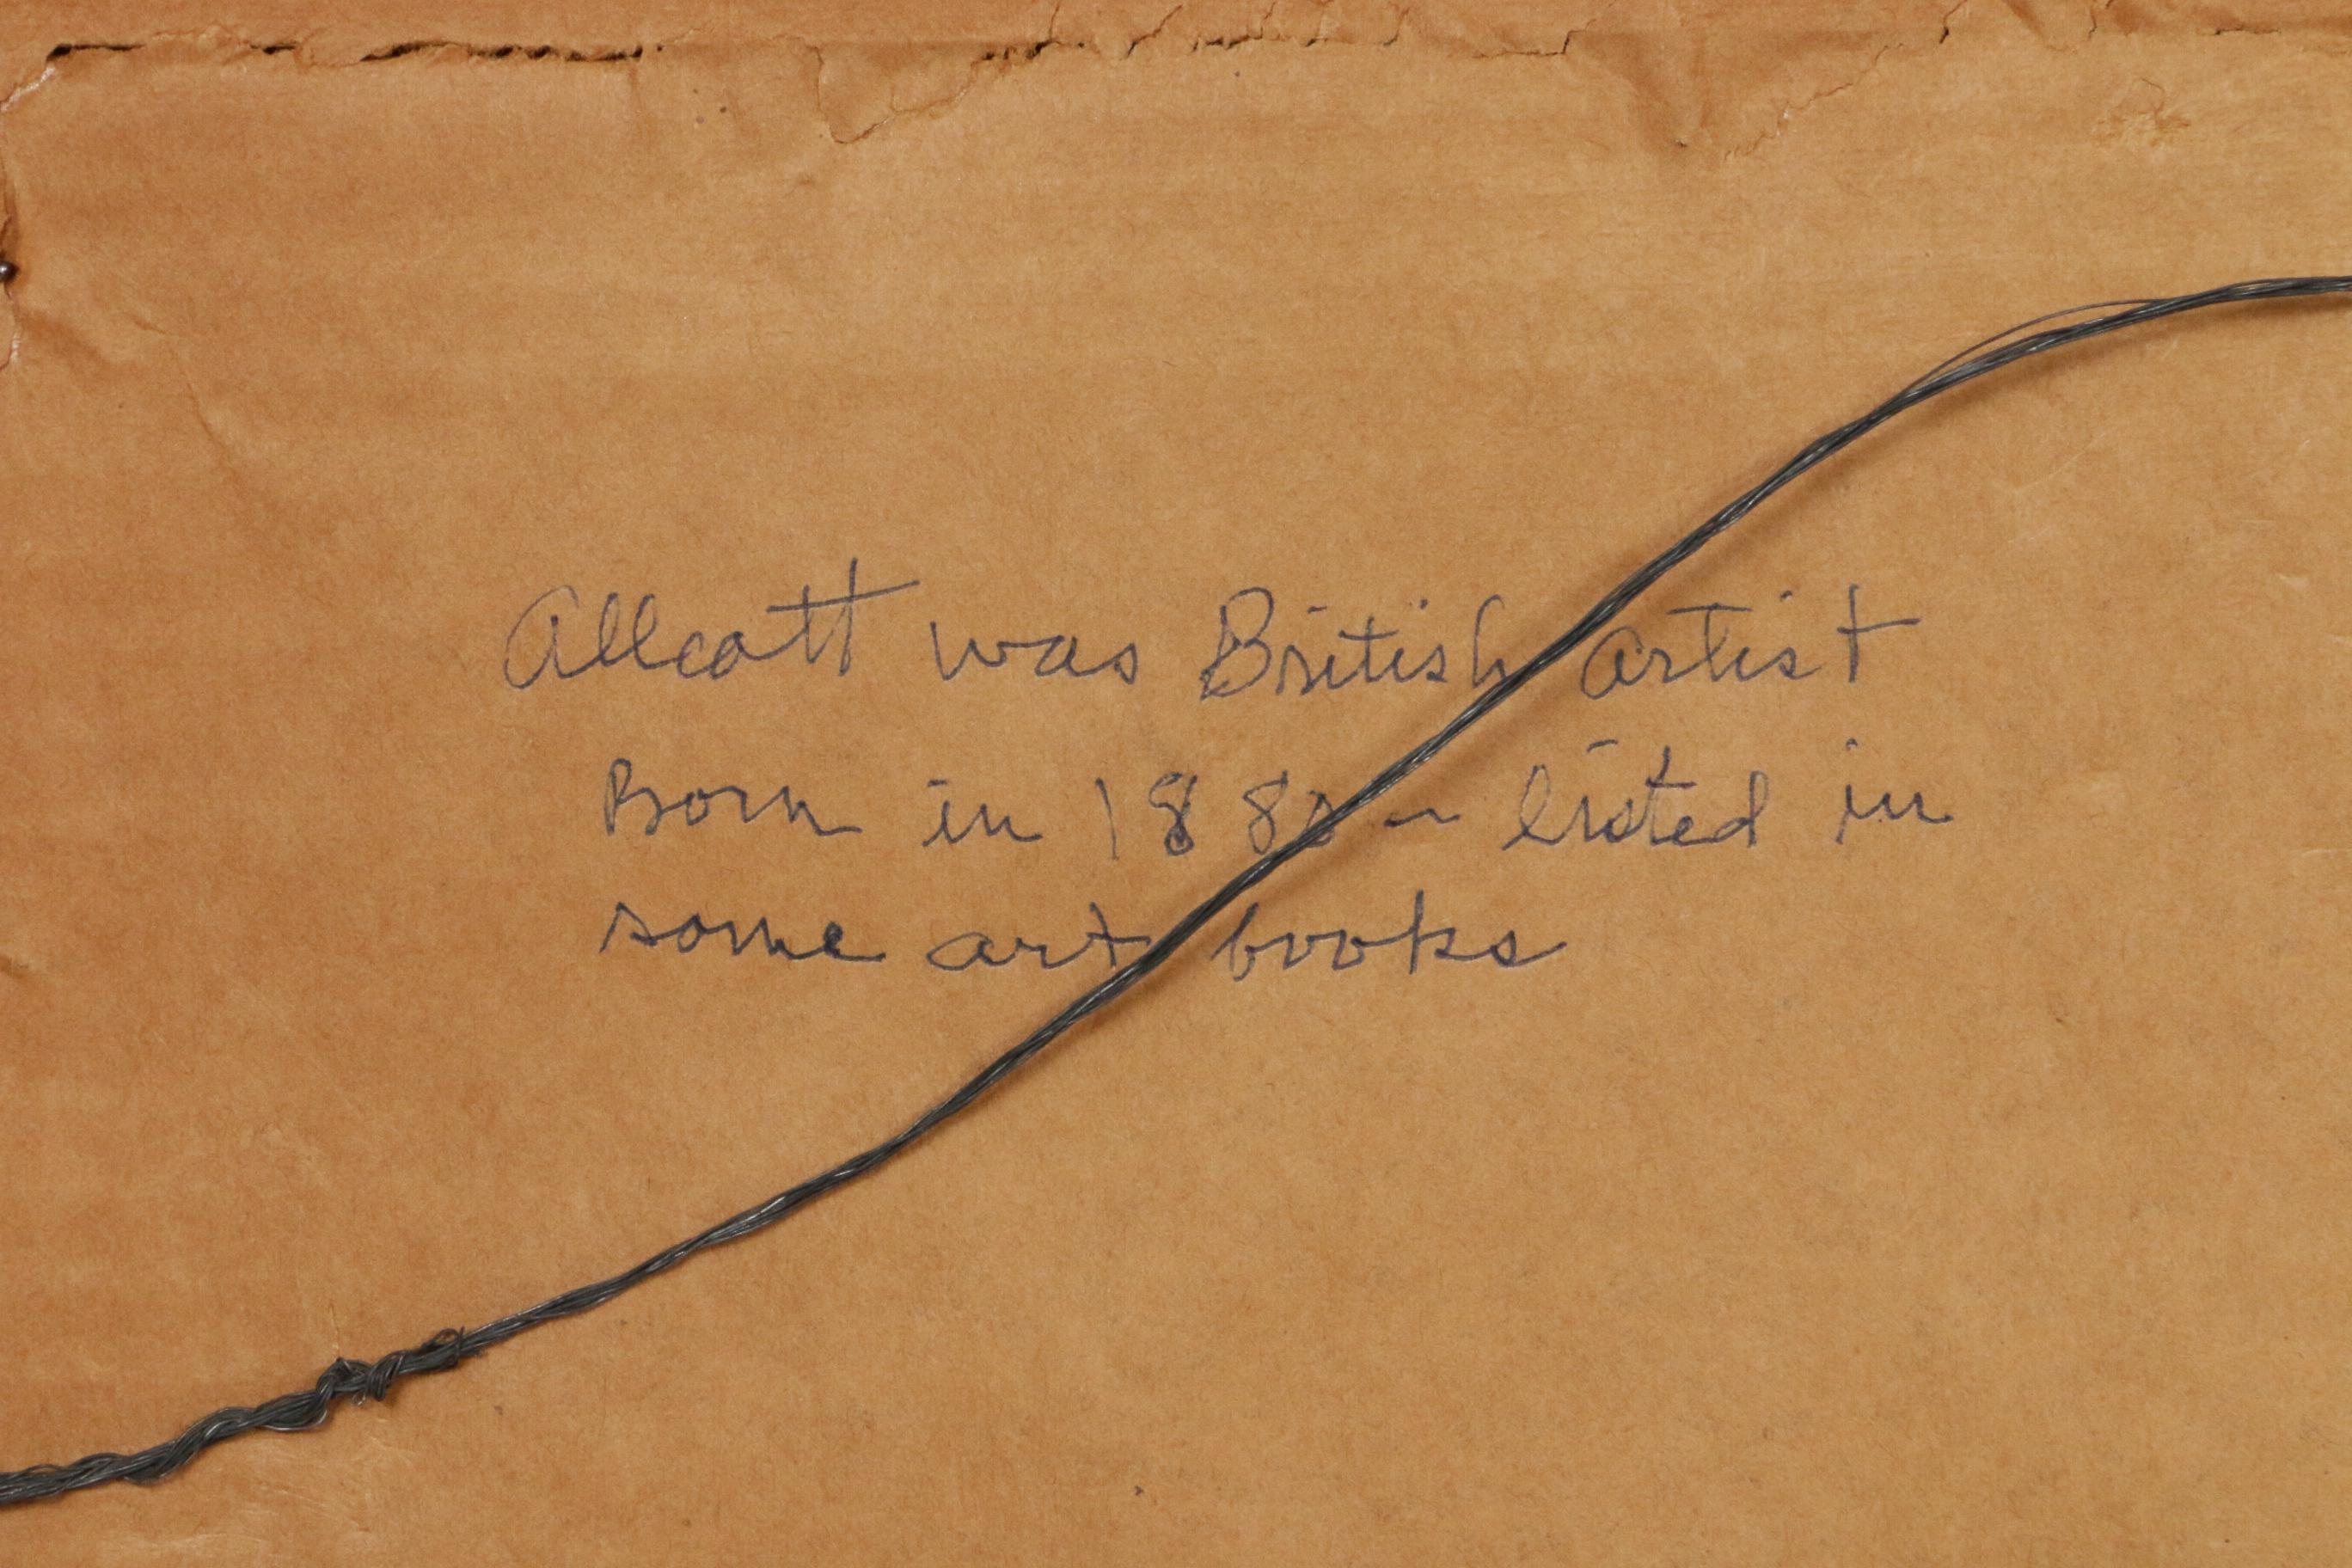 Allcott was British artist
Born in 188 - listed in
some art books